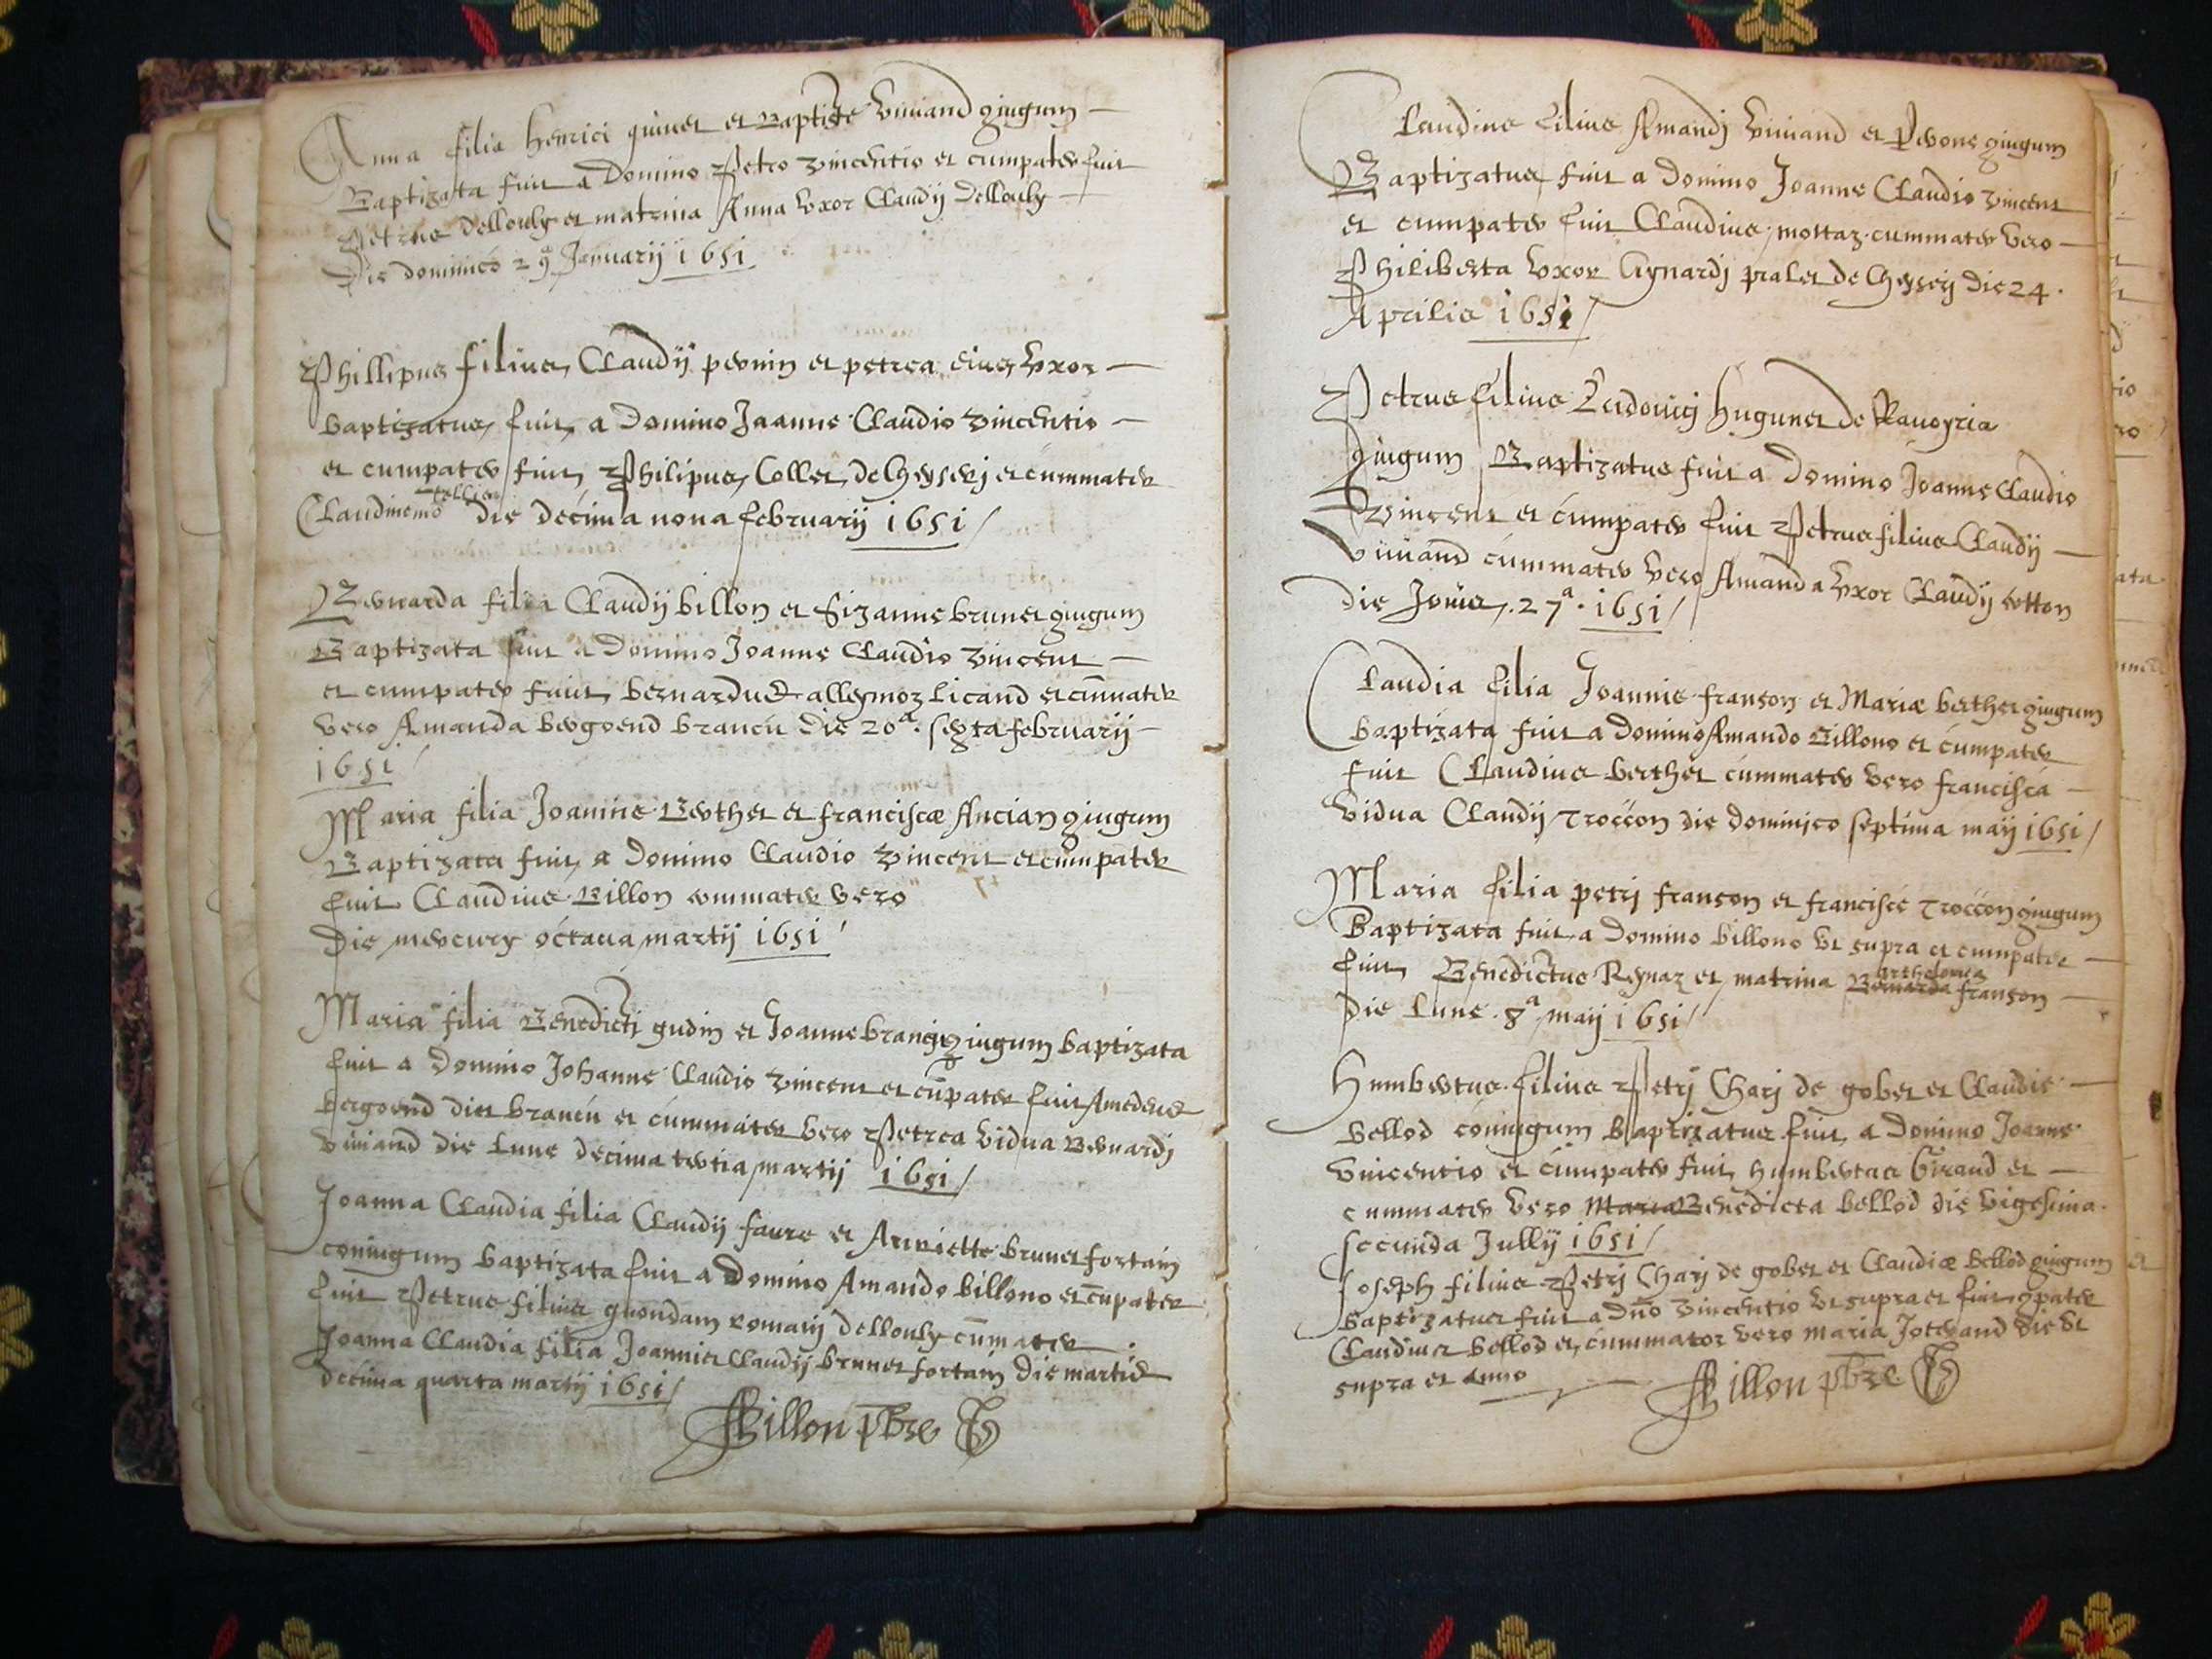 Anna filia henrici quinet et Baptiste Viviand giugum
Baptizata fuit a Domino Petro Vincentio et cumpater fuit
Petrus Dellouly et matrina Anna Vxor Claudij Dellouly
Die dominico 29ª Januarij 1651
Phillipus filius Claudij pernin et petrea eius Vxor
baptizatus fuit a Domino Jaanne Claudio Vincentio
et cumpater fuit Philipus Collet de Cheyserj et cummater
Claudine die decima nona februarij 1651
Bernarda filia Claudij billon et Sizanne brunet giugum
Baptizata fuit a Domino Joanne Claudio Vincent
et cumpater fuit bernardus allegmoz licand et cummater
vero Amanda bergoend brancu die 20ª sexta februarij
1651
Maria filia Joannis Berther et franciscæ Ancian giugum
Baptizata fuit a Domino Claudio Vincent et cumpater
fuit Claudius Billon cummater vero
Die mercurij octava martij 1651
Maria filia Benedicti gudin et Joanne brangij giugum baptizata
fuit a Domino Johanne Claudio Vincent et cũpater fuit Amedeus
bergoend dit brancu et cummater vero Petrea vidua Bernardj
viviand die lune decima tertia martij 1651
Joanna Claudia filia Claudij faure et Anriette brunet fortain
coniugum baptizata fuit a Domino Amando billono et cũpater
fuit Petrus filius quondam romanj dellouly cũmater
Joanna Claudia filia Joannis Claudij brunet fortain die martis
decima quarta martij 1651
Billon pbre
Claudius filius Amandj Viviand et Pevone giugum
Baptizatus fuit a domino Joanne Claudio Vincent
et cumpater fuit Claudius mottaz cummater vero
Philiberta Vxor Aynardj pralet de Cheyserj die 24
Aprilis 1651
Petrus filius Ludovicj hugunet de Ravoyria
giugum Baptizatus fuit a Domino Joanne Claudio
Vincent et cumpater fuit Petrus filius Claudij
Viviand cummater vero Amanda Vxor Claudij setton
die Jovis 27ª 1651
Claudia filia Joannis franson et Mariæ berthet giugum
baptizata fuit a domino Amando Billono et cumpater
fuit Claudius berthet cummater vero francisca
vidua Claudij Troccon die dominico septima maij 1651
Maria filia petrj franson et francisce Troccon giugum
Baptizata fuit a Domino billono vt supra et cumpater
fuit Benedictus Reynaz et matrina Bartholomea franson
die lune 8ª maij 1651
Humbertus filius Petrj Charj de gobet et Claudie
bellod coniugum Baptizatus fuit a Domino Joanne
Vincentio et cumpater fuit humbertus Giraud et
cummater vero Maria Benedicta bellod die vigesima
secunda Jullij 1651
Joseph filius Petrj Charj de gobet et Claudiæ bellod giugum
baptizatus fuit a Dño Vincentio vt supra et fuit gpater
Claudius bellod et cummator vero maria Joterand die vt
supra et anno
Billon pbre